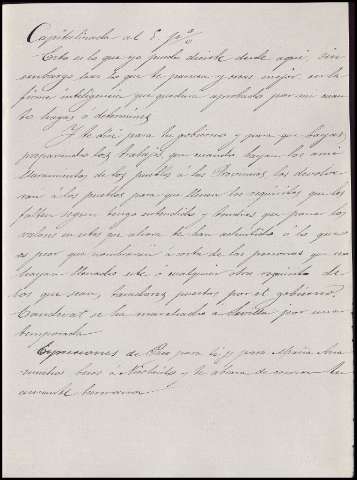 Capitalizada al 5 p%
Esto es lo que yo puedo decirte desde aquí, sin
embargo haz lo que te parezca y creas mejor, en la
firme inteligencia que quedará aprobado por mi cuan-
to hagas o determines.
Y te diré para tu gobierno y para que vayas
preparando los trabajos que cuando hayan los ami-
llaramientos de los pueblos á las Provincias, los devolve-
rán á los pueblos para que llenen los requisitos que les
falten segun tengo entendido y tendras que poner los
valores en estos que ahora te han admitido ó lo que
es peor que nombrarán á costa de las personas que no
hayan llenado este ó cualquier otro requisito de
los que sean, tasadores puestos por el gobierno.
se ha marchado a Sevilla por una
temporada.
Expresiones de Paco para ti y para Maria Ana
muchos besos á Nicolasito y te abraza de corazon tu
amante hermano.